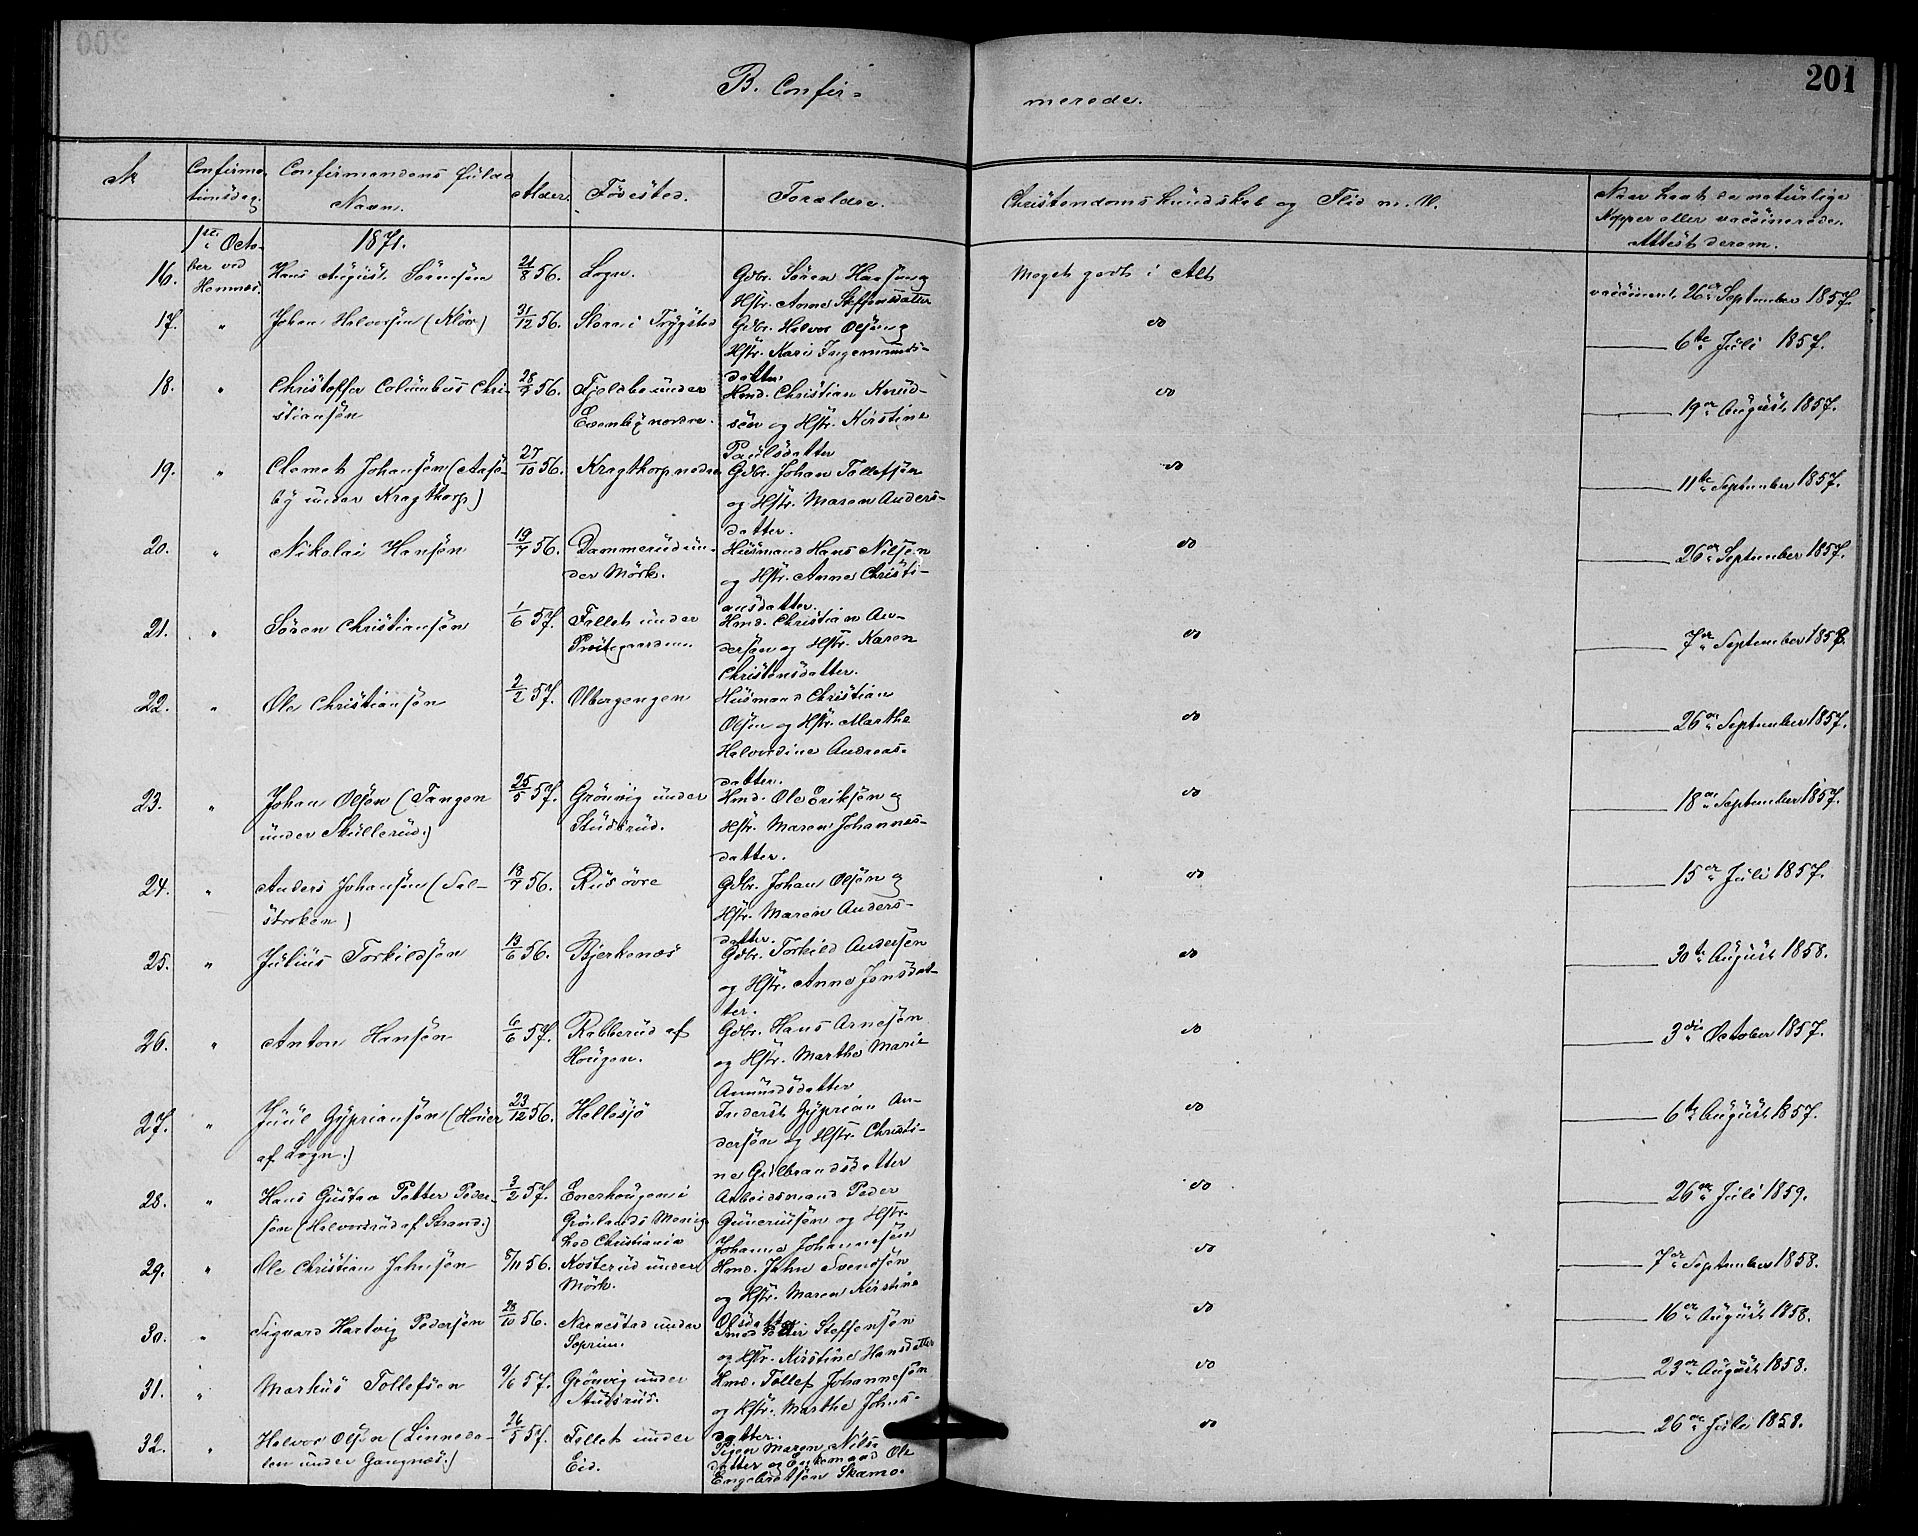 201
B. Confir=
merede.
№
Confirma-
tionsdag.
Confirmandens fulde
Navn.
Alder.
Fødested.
Forældre.
Christendoms Kundskab og Flid m. V.
Naar havt de naturlige
Kopper eller vaccinerede.
Attest derom.
1ste Octo-
ber ved
Hemnæs.
1871.
16. Hans August Sørensen 21/8 56. Sogn. Gdbr. Søren Hansen og
Hstr. Anne Steffensdatter
Meget godt i Alt
vaccineret 26de September 1857.
17. " Johan Halvorsen (Klör) 31/12 56. i Trygstad Gdbr. Halvor Olsen og
Hstr. Kari Ingemunds-
datter.
do
6te Juli 1857.
18. " Christoffer Columbus Chri-
stiansen 28/7 56. under
nordre. Hmd. Christian Knud-
sen og Hstr. Kirstine
Paulsdatter
do
19de August 1857.
19. " Clemet Johansen (Aase-
by under Kragthorp) 27/10 56. Kragthorp nedre Gdbr. Johan Tollefsen
og Hstr. Maren Anders-
datter.
do
11te September 1857.
20. " Nikolai Hansen 19/7 56. Dammerud un-
der Mörk. Husmand Hans Nilsen
og Hstr. Anne Christi-
ansdatter.
do
26de September 1857.
21. " Søren Christiansen 1/6 57. Fallet under
Præstegaarden. Hmd. Christian An-
dersen og Hstr. Karen
Christensdatter.
do
7de September 1858.
22. " Ole Christiansen 2/2 57. Olbergengen Husmand Christian
Olsen og Hstr. Marthe
Halvordine Andreas-
datter.
do
26de September 1857.
23. " Johan Olsen (Tangen
under Skullerud.) 25/5 57. Grönvig under
Studsrud. Hmd. Ole Eriksen og
Hstr. Maren Johannes-
datter.
do
18de September 1857.
24. " Anders Johansen (
) 18/7 56. Rus övre Gdbr. Johan Olsen og
Hstr. Maren Anders-
datter.
do
15de Juli 1857.
25. " Julius Torkildsen 13/6 56. Bjerkenæs Gdbr. Torkild Andersen
og Hstr. Anne Jensdat-
ter.
do
30te August 1858.
26. " Anton Hansen 6/6 57. Rakkerud af
Hougen. Gdbr. Hans Arnesen
og Hstr. Marthe Marie
Amundsdatter
do
3die October 1857.
27. " Juul Gyprianson (Houer
af Sogn.) 23/12 56. Hellesjö Inderst Gyprian An-
dersen og Hstr. Christi-
ne Gulbrandsdatter
do
6te August 1857.
28. " Hans Gustav Petter Peder-
sen (Halvordsrud af Strand.) 3/2 57. Enerhougen i
Grönlands Menig-
hed Christiania Arbeidsmand Peder
Guneriusen og Hstr.
Johanne Johannesen
do
26de Juli 1859.
29. " Ole Christian Jahnsen 8/11 56. Kosterud under
Mörk. Hmd. Jahn Svendsen
og Hstr. Maren Kirstine
Olsdatter
do
7de September 1858.
30. " Sigvard Hartvig Pedersen 28/10 56. Narvestad under
Peter Steffensen
og Hstr. Kirstine Hansdatter
do
16de August 1858.
31. " Markus Tollefsen 9/6 57. Grönvig under
Studsrud. Hmd. Tollef Johannesen
og Hstr. Marthe Johns-
datter.
do
23de August 1858.
32. " Halvor Olsen (Linneda-
len under Gangnæs.) 26/5 57. Fallet under
Eid. Pigen Maren Nils-
datter og Enkemand Ole
Engebretsen Skamo.
do
26de Juli 1858.